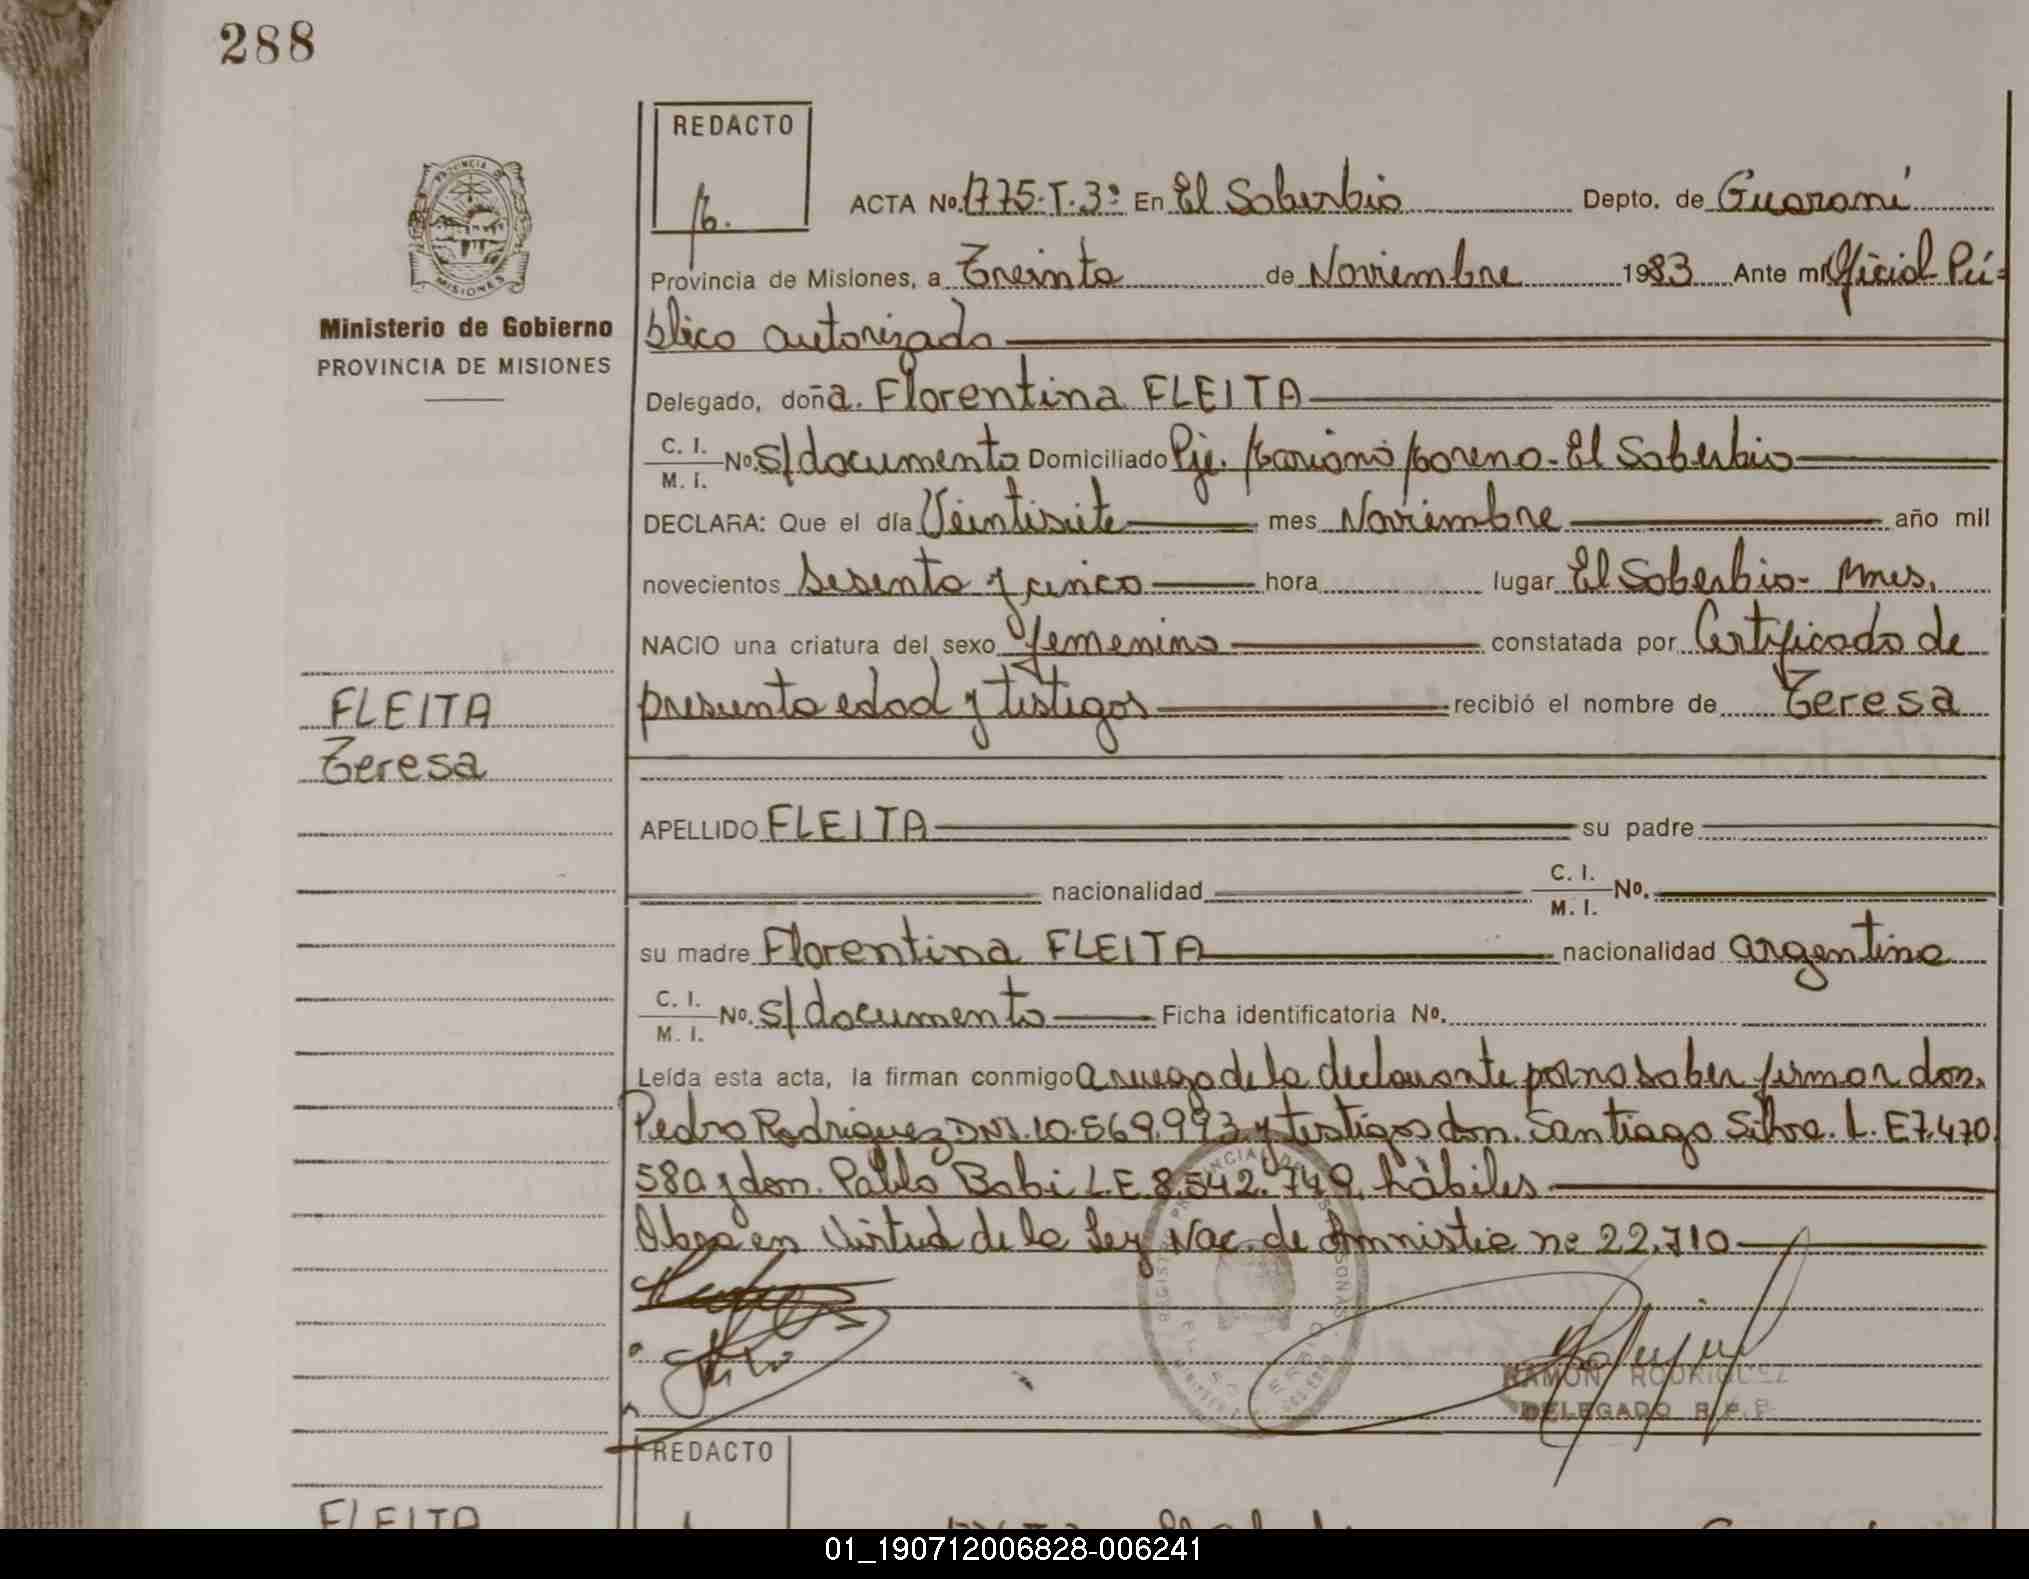 288
REDACTO
ACTA No. 1775-T.3º En El Soberbio Depto. de Guaraní
Provincia de Misiones, a Treinta de Noviembre 1983 Ante mi Oficial Pú-
blico autorizado
Ministerio de Gobierno
PROVINCIA DE MISIONES
Delegado, doña. Florentina FLEITA
C. I.
M. I. No. s/documento Domiciliado Pje. Mariano Moreno - El Soberbio
DECLARA: Que el día Veintisiete mes Noviembre año mil
novecientos sesenta y cinco hora lugar El Soberbio - Mnes.
NACIO una criatura del sexo femenino constatada por Certificado de
presunta edad y testigos recibió el nombre de Teresa
FLEITA
Teresa
APELLIDO FLEITA su padre
nacionalidad C. I.
M. I. No.
su madre Florentina FLEITA nacionalidad argentina
C. I.
M. I. No. s/documento Ficha identificatoria No.
Leída esta acta, la firman conmigo a ruego de la declarante por no saber firmar don.
Pedro Rodriguez DNI. 10.569.993 y testigos don. Santiago Silva. L. E 7.470
580 y don. Pablo Bobi L.E 8.542.749. hàbiles
Obra en virtud de la Ley Nac. de Amnistia nº 22.710
RAMON RODRIGUEZ
DELEGADO R.P.P.
REDACTO
FLEITA
01_190712006828-006241